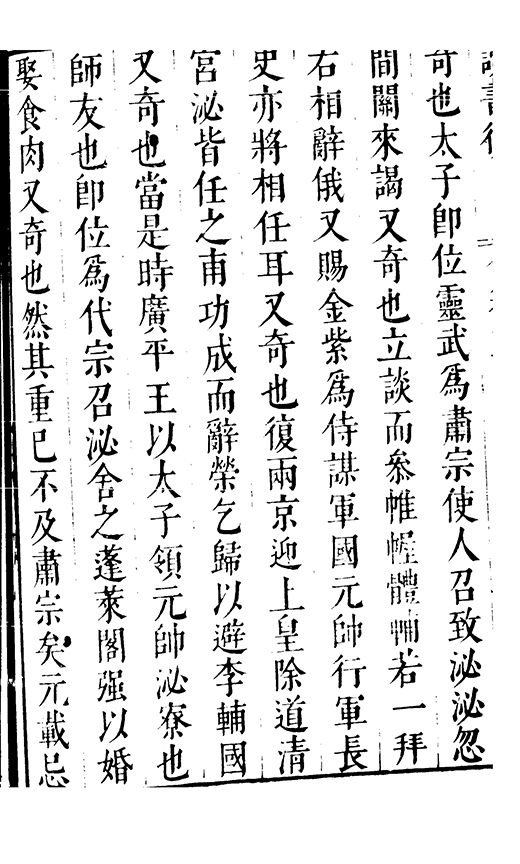 讀書後
奇也太子卽位靈武爲肅宗使人召致泌泌忽
間關來謁又奇也立談而叅帷幄體輔若一拜
右相辭俄又賜金紫爲侍謀軍國元帥行軍長
史亦將相任耳又奇也復兩京迎上皇除道清
宮泌皆任之甫功成而辭榮乞歸以避李輔國
又奇也當是時廣平王以太子領元帥泌寮也
師友也卽位爲代宗召泌舍之蓬萊閣强以婚
娶食肉又奇也然其重已不及肅宗矣元載忌